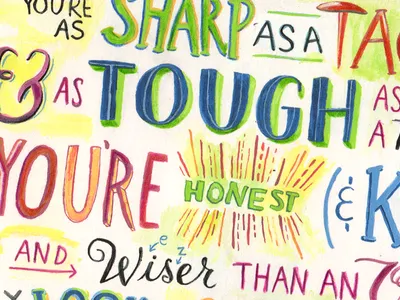 YOU'RE
AS SHARP AS A TAC
& AS TOUGH AS
A
YOU'RE HONEST (& K
AND Wiser THAN AN
e z